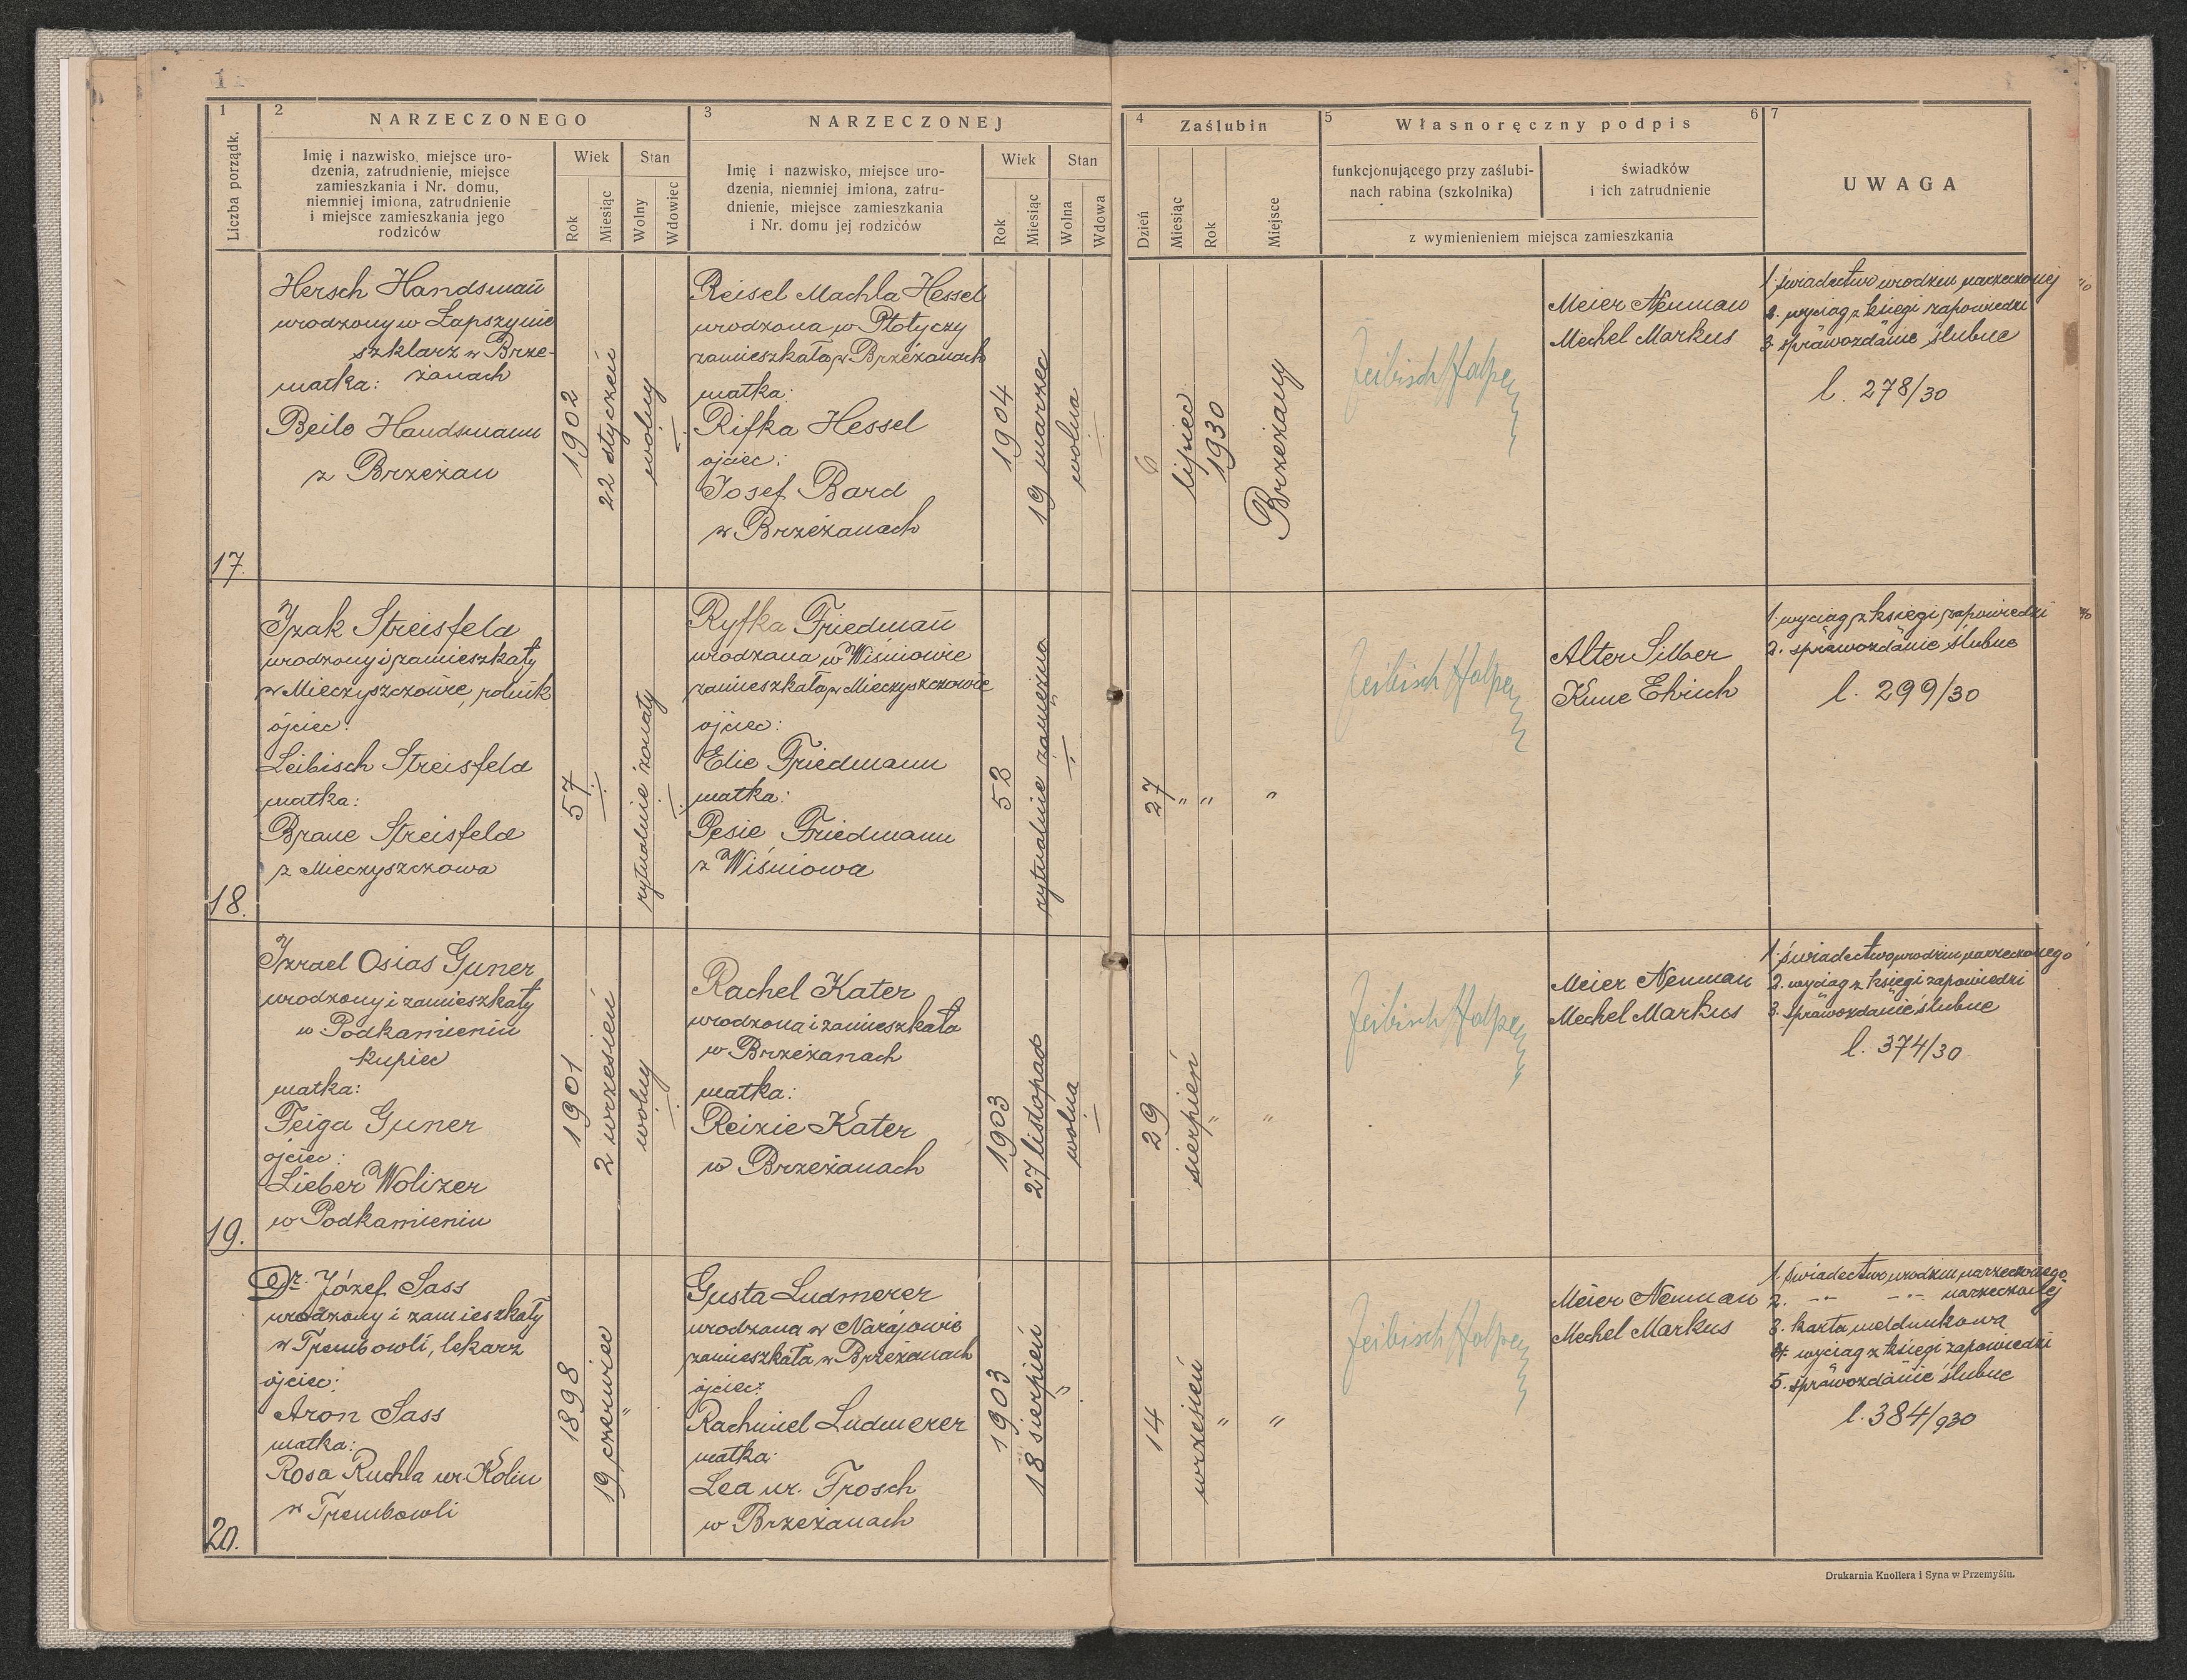 1
1
2
NARZECZONEGO
3
NARZECZONEJ
4
Zaślubin
5
Własnoręczny podpis
6
7
Liczba porządk.
Imię i nazwisko, miejsce uro-
dzenia, zatrudnienie, miejsce
zamieszkania i Nr. domu,
niemniej imiona, zatrudnienie
i miejsce zamieszkania jego
rodziców
Wiek
Stan
Rok
Miesiąc
Wolny
Wdowiec
Imię i nazwisko, miejsce uro-
dzenia, niemniej imiona, zatru-
dnienie, miejsce zamieszkania
i Nr. domu jej rodziców
Wiek
Stan
Rok
Miesiąc
Wolna
Wdowa
Dzień
Miesiąc
Rok
Miejsce
funkcjonującego przy zaślubi-
nach rabina (szkolnika)
świadków
i ich zatrudnienie
z wymienieniem miejsca zamieszkania
UWAGA
17.
Hersch Handsman̄
urodzony w Łapszynie
szklarz w Brze-
żanach
matka:
Beile Handsmann
z Brzeżan
1902
22 styczeń
wolny
Reisel Machla Hessel
urodzona w Płotyczy
zamieszkała w Brzeżanach
matka:
Rifka Hessel
ojciec:
Josef Bard
w Brzeżanach
1904
19 marzec
wolna
6
lipiec
1930
Brzeżany
Leibisch Halpern
Meier Neuman
Mechel Markus
1. świadectwo urodzin narzeczonej
2. wyciąg z księgi zapowiedzi
3. sprawozdanie ślubne
l. 278/30
18.
Izak Streisfeld
urodzony i zamieszkały
w Mieczyszczowie, rolnik
ojciec:
Leibisch Streisfeld
matka:
Brane Streisfeld
z Mieczyszczowa
57
rytualnie żonaty
Ryfka Friedman̄
urodzona w Wiśniowie
zamieszkała w Mieczyszczowie
ojciec:
Elie Friedmann
matka:
Pesie Friedmann
z Wiśniowa
52
rytualnie zamężna
27
" " "
Leibisch Halpern
Alter Silber
Kune Ehrich
1. wyciąg z księgi zapowiedzi
2. sprawozdanie ślubne
l. 299/30
19.
Izrael Osias Guner
urodzony i zamieszkały
w Podkamieniu
kupiec
matka:
Feiga Guner
ojciec:
Lieber Wolizer
w Podkamieniu
1901
2 wrzesień
wolny
Rachel Kater
urodzona i zamieszkała
w Brzeżanach
matka:
Reizie Kater
w Brzeżanach
1903
27 listopad
wolna
29
sierpień
" "
Leibisch Halpern
Meier Neuman
Mechel Markus
1. świadectwo urodzin narzeczonego
2. wyciąg z księgi zapowiedzi
3. sprawozdanie ślubne
l. 374/30
20.
Dr. Józef Sass
urodzony i zamieszkały
w Trembowli, lekarz
ojciec:
Aron Sass
matka:
Rosa Ruchla ur. Kolin
w Trembowli
1898
19 czerwiec
"
Gusta Ludmerer
urodzona w Narajowie
zamieszkała w Brzeżanach
ojciec:
Rachmiel Ludmerer
matka:
Lea ur. Frosch
w Brzeżanach
1903
18 sierpień
"
14
wrzesień
" "
Leibisch Halpern
Meier Neuman
Mechel Markus
1. świadectwo urodzin narzeczonego
2. -"- -"- narzeczonej
3. karta meldunkowa
4. wyciąg z księgi zapowiedzi
5. sprawozdanie ślubne
l. 384/930
Drukarnia Knollera i Syna w Przemyślu.